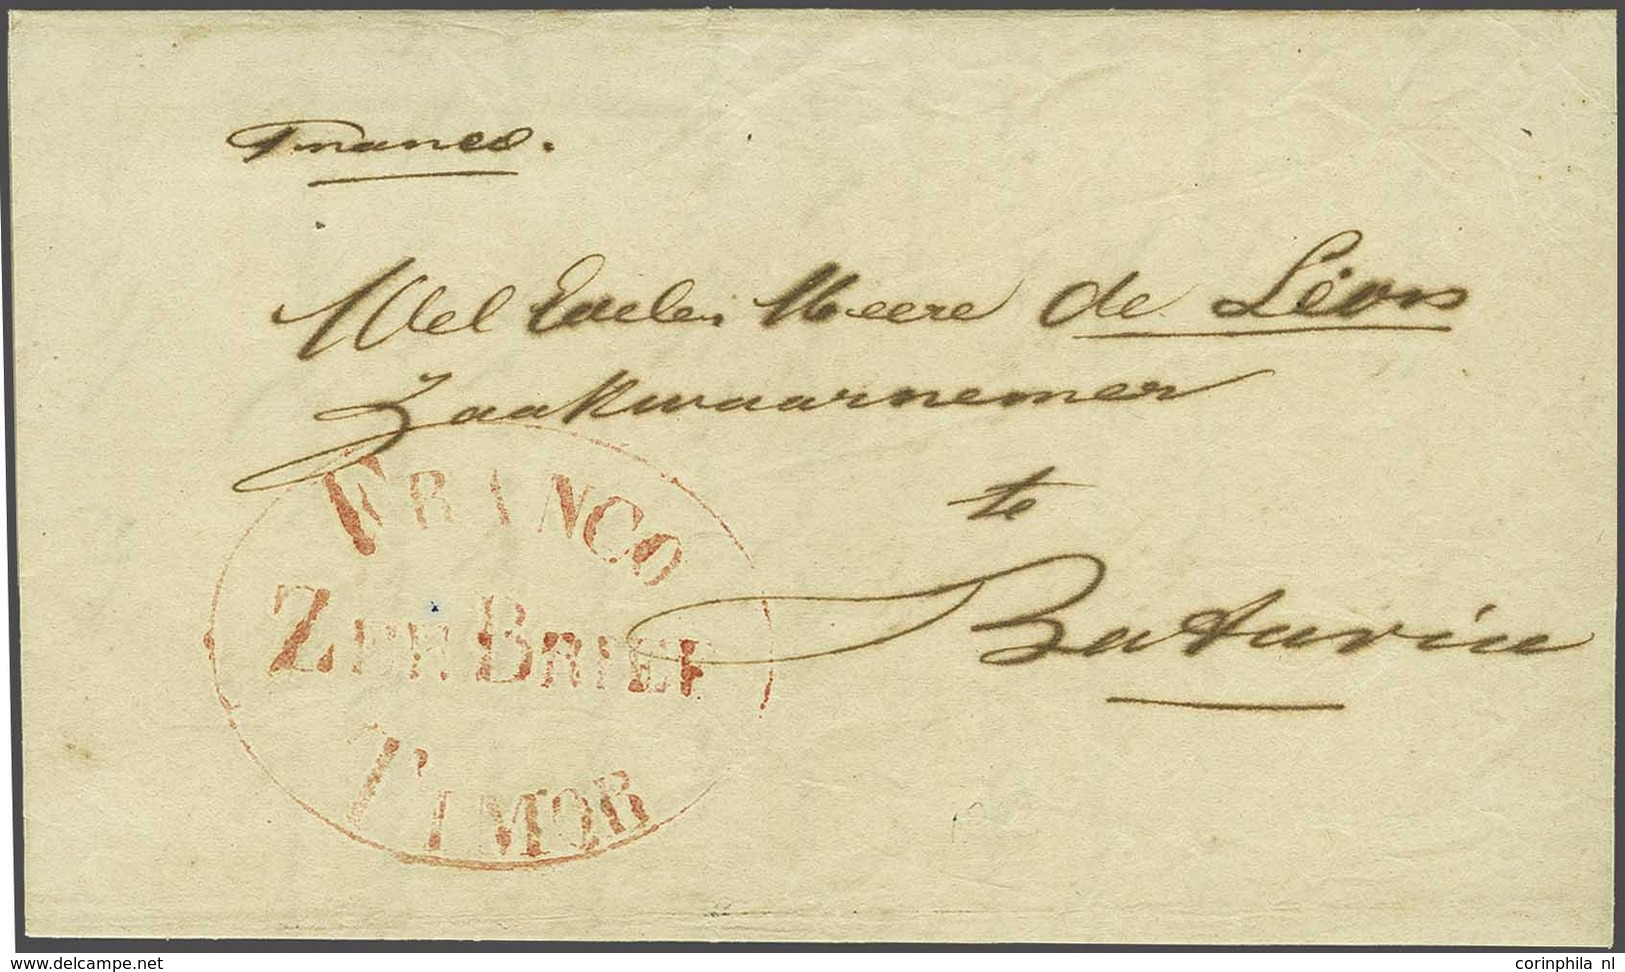 Franco.
Wel Edelen Heere de Léon
Zaakwaarnemer
te
Batavia
FRANCO
ZEE BRIEF
TIMOR
www.delcampe.net
corinphila nl